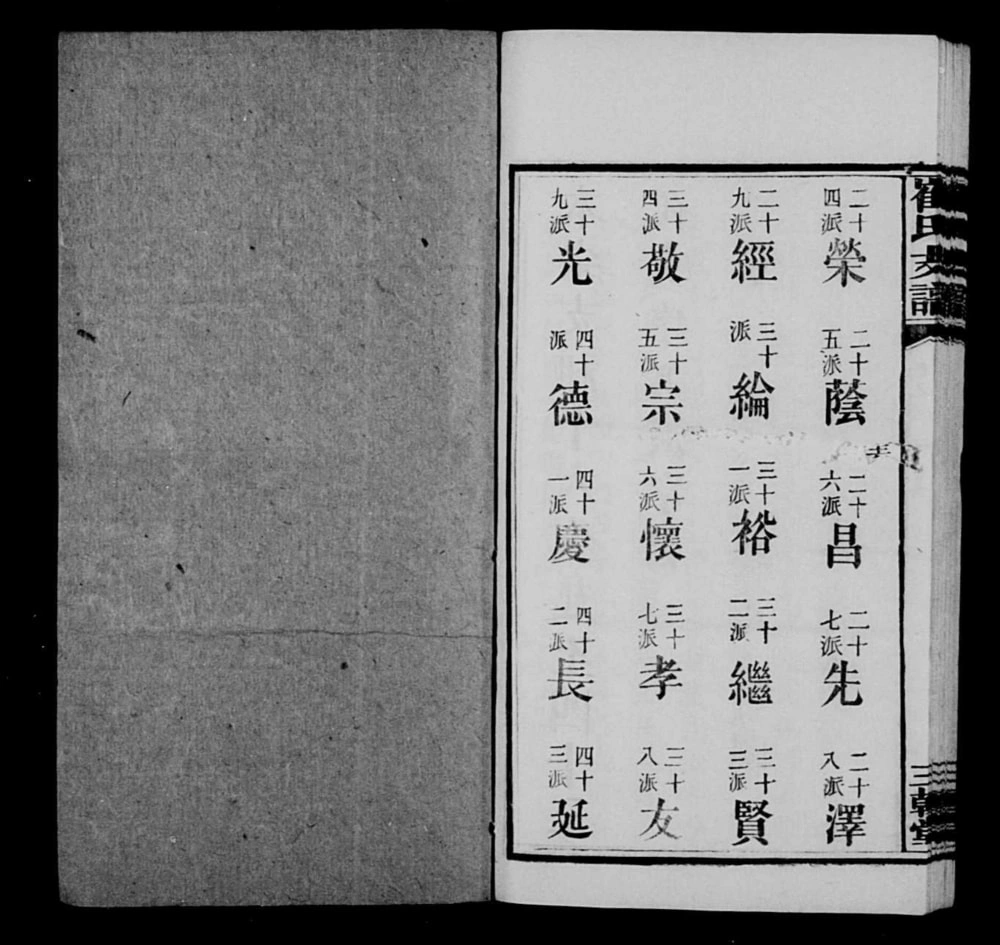 崔氏支譜
三韓堂
二十四派榮 二十五派蔭 二十六派昌 二十七派先 二十八派澤
二十九派經 三十派綸 三十一派裕 三十二派繼 三十三派賢
三十四派敬 三十五派宗 三十六派懷 三十七派孝 三十八派友
三十九派光 四十派德 四十一派慶 四十二派長 四十三派延